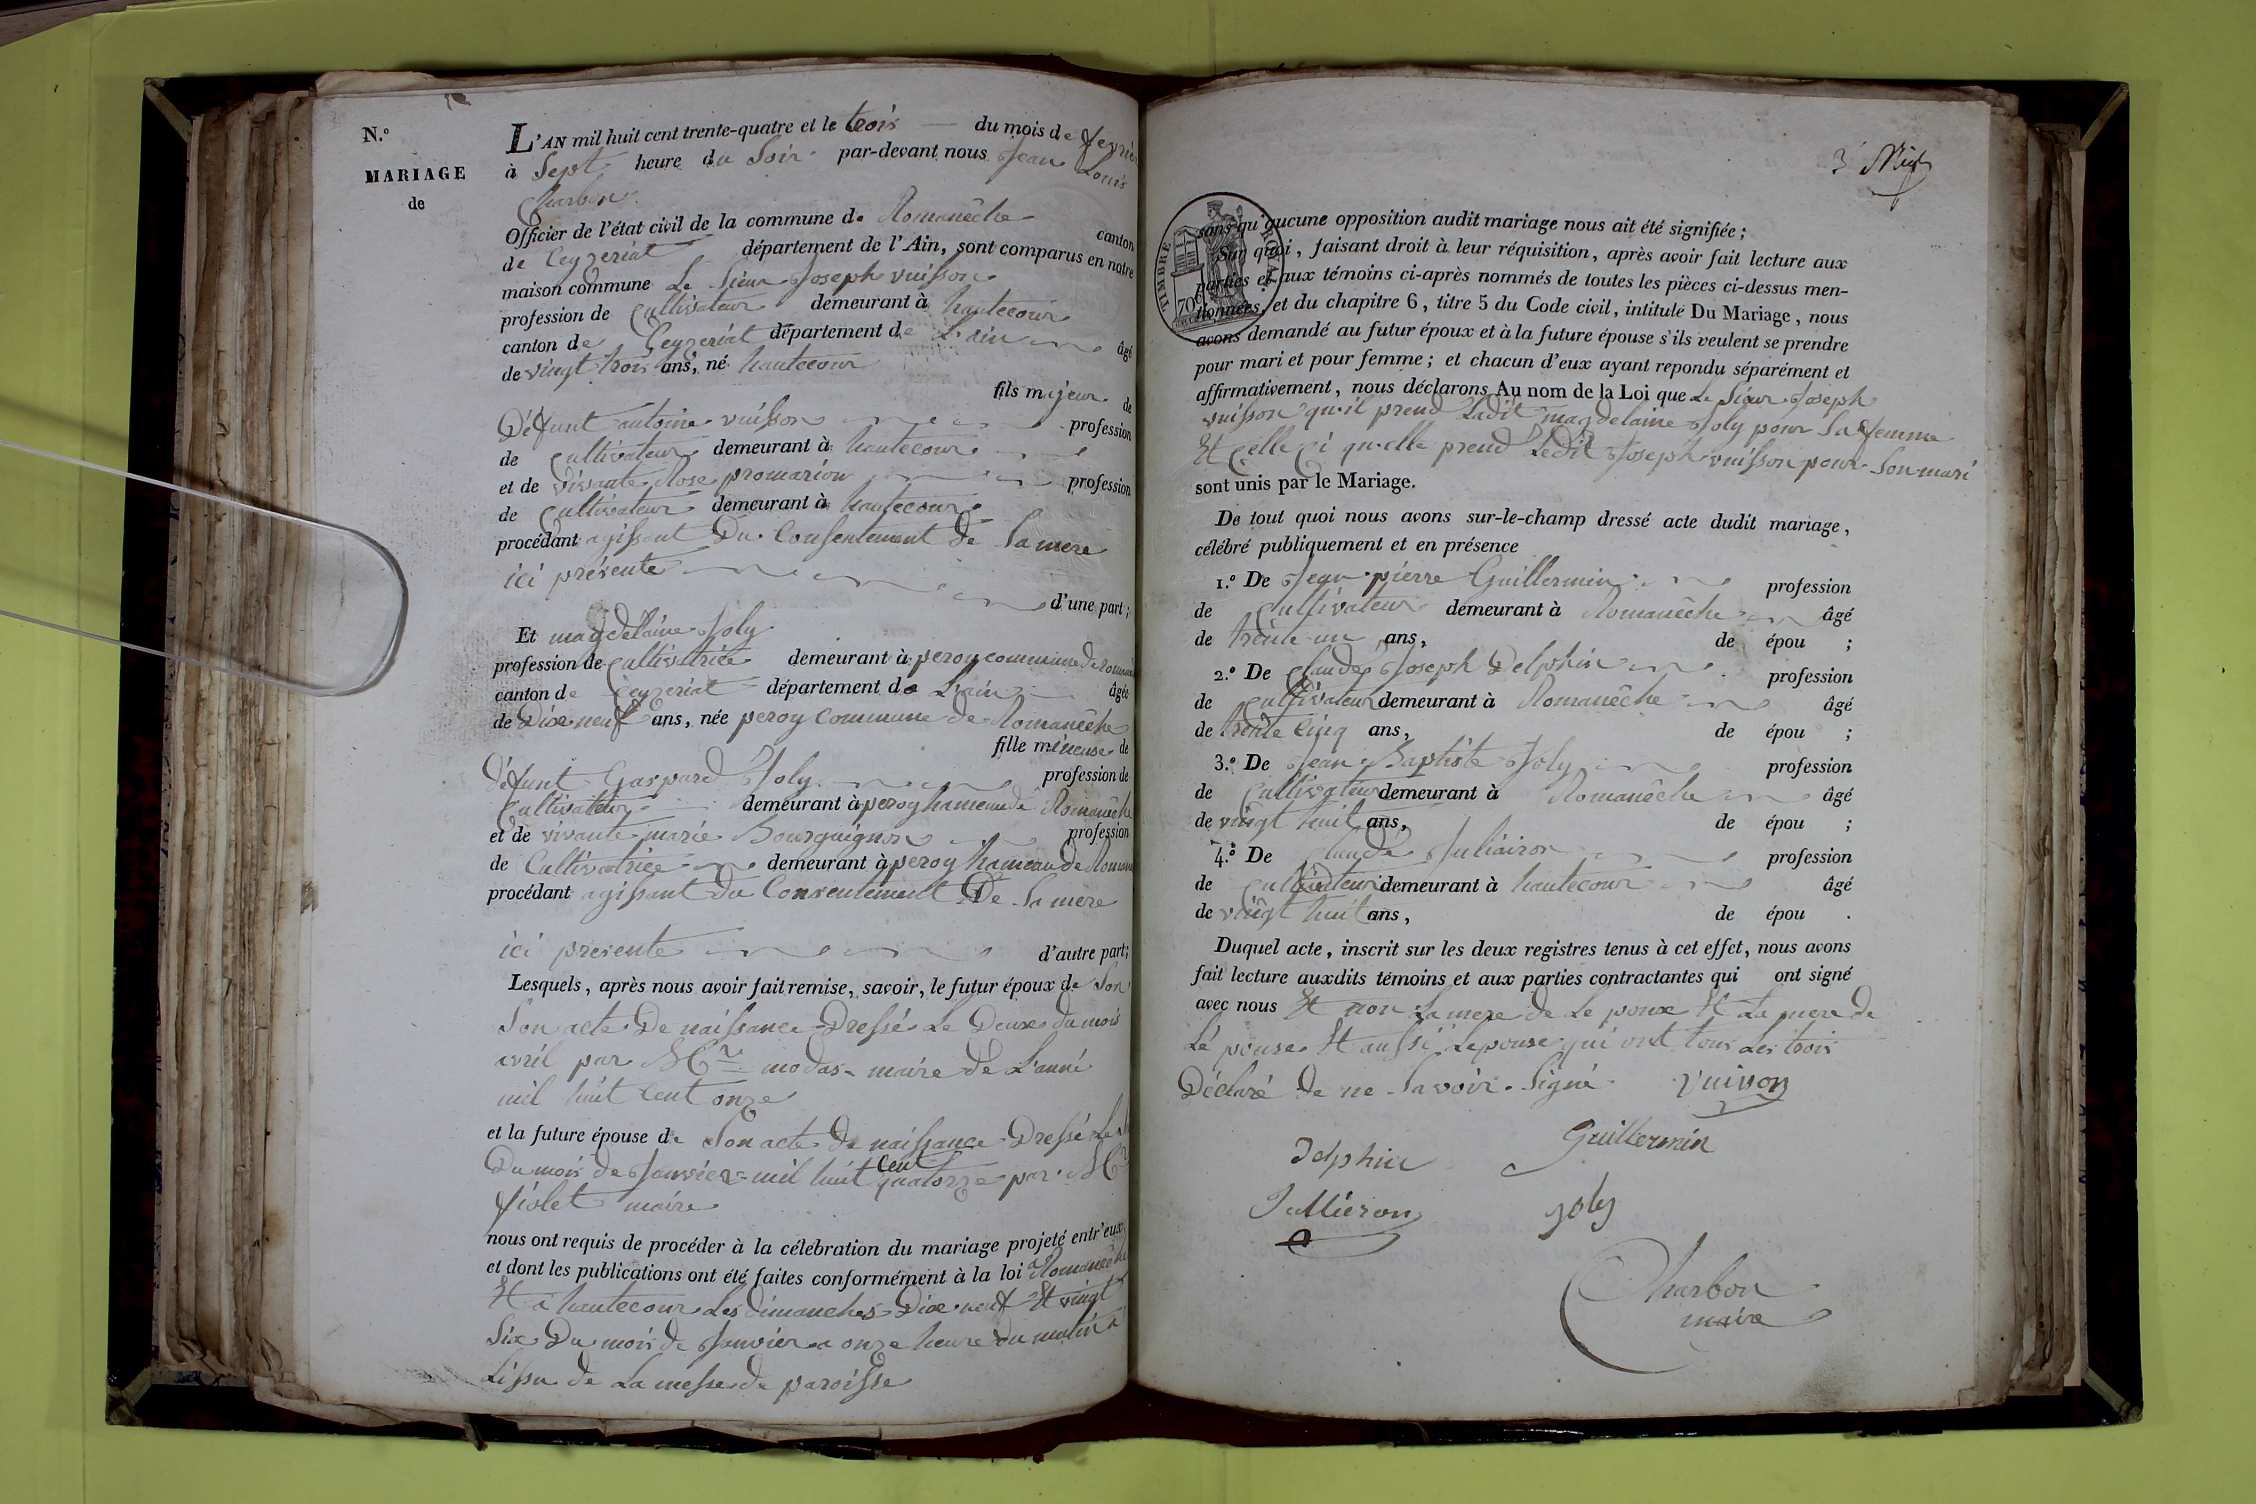 N.º
MARIAGE
de
L'AN mil huit cent trente-quatre et le trois du mois de fevrier
à Sept heure du Soir par-devant nous Jean Louis
Charbon
Officier de l'état civil de la commune de Romanêche canton
de Ceyzeriat département de l'Ain, sont comparus en notre
maison commune Le Sieur Joseph vuisson
profession de Cultivateur demeurant à hautecour
canton de Ceyzeriat département de L'ain âgé
de vingt trois ans, né hautecour
fils majeur de
Défunt antoine vuisson profession
de Cultivateur demeurant à hautecour
et de vivante Rose promarion profession
de Cultivateur demeurant à hautecour
procédant agissant Du Consentement De Sa mere
ici présente
d'une part;
Et magdelaine Joly
profession de Cultivatrice demeurant à peroy commune de
canton de Ceyzeriat département de L'ain âgée
de Dix neuf ans, née peroy Commune de Romanêche
fille mineuse de
défunt Gaspard Joly profession de
Cultivateur demeurant à peroy hameau de Romanêche
et de vivante marie Bourguignon profession
de Cultivatrice demeurant à peroy hameau de
procédant agissant Du Consentement De Sa mere
ici presente d'autre part;
Lesquels, après nous avoir fait remise, savoir, le futur époux de Son
Son acte De naissance Dressé Le Deuxe du mois
avril par Mr modas maire de L'anné
mil huit Cent onze
et la future épouse de Son acte de naissance Dressé Le
Du mois de Janvier mil huit Cent quatorze par Mr
fiolet maire
nous ont requis de procéder à la célébration du mariage projeté entr'eux
et dont les publications ont été faites conformément à la loi a Romanêche
Et a hautecour Les dimanches Dix neuf Et vingt
Six Du mois de Janvier a onze heure du matin a
Lissu de La messe de paroisse
3
TIMBRE ROYAL
70
sans qu'aucune opposition audit mariage nous ait été signifiée;
Sur quoi, faisant droit à leur réquisition, après avoir fait lecture aux
parties et aux témoins ci-après nommés de toutes les pièces ci-dessus men-
tionnées, et du chapitre 6, titre 5 du Code civil, intitulé Du Mariage, nous
avons demandé au futur époux et à la future épouse s'ils veulent se prendre
pour mari et pour femme; et chacun d'eux ayant repondu séparément et
affirmativement, nous déclarons Au nom de la Loi que Le Sieur Joseph
vuisson qu'il prend Ladit magdelaine Joly pour Sa femme
Et Celle Ci qu'elle prend Ledit Joseph vuisson pour Son mari
sont unis par le Mariage.
De tout quoi nous avons sur-le-champ dressé acte dudit mariage,
célébré publiquement et en présence
1.º De Jean pierre Guillermin profession
de Cultivateur demeurant à Romanêche âgé
de trente un ans, de épou ;
2.º De Claude Joseph Delphin profession
de Cultivateur demeurant à Romanêche âgé
de trente Cinq ans, de épou ;
3.º De Jean Baptiste Joly profession
de Cultivateur demeurant à Romanêche âgé
de vingt huit ans, de épou ;
4.º De Claude Juliairon profession
de Cultivateur demeurant à hautecour âgé
de vingt huit ans, de épou .
Duquel acte, inscrit sur les deux registres tenus à cet effet, nous avons
fait lecture auxdits témoins et aux parties contractantes qui ont signé
avec nous Et non La mere de Le poux Et La mere de
Lé pouse Et aussi Lepouse qui ont tous Les trois
Déclaré de ne Savoir Signé vuison
Delphin Guillermin
Jullieron joly
Charbon
maire